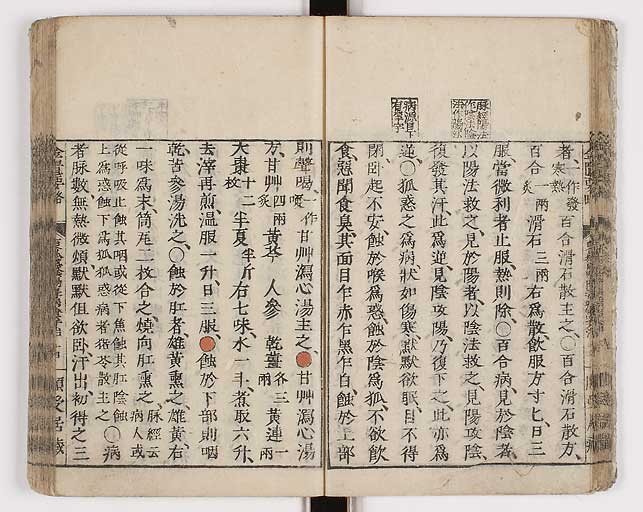 者、一作發寒熱百合滑石散主之、○百合滑石散方、
百合一兩炙滑石三兩右爲散飲服方寸七日三
服、當微利者止服熱則除、○百合病見於陰者、
以陽法救之、見於陽者、以陰法救之、見陽攻陰、
復發其汗此爲逆、見陰攻陽、乃復下之、此亦爲
逆、○狐惑之爲病狀如傷寒、默默欲眠、目不得
閉、臥起不安、蝕於喉爲惑、蝕於陰爲狐、不欲飲
食、惡聞食臭、其面目乍赤乍黑乍白、蝕於上部
則聲喝、一作嗄甘艸瀉心湯主之、●甘艸瀉心湯
方、甘艸四兩炙黃芩 人參 乾薑各三兩黃連一兩
大棗十二枚半夏半斤右七味、水一斗、煮取六升、
去滓再煎、溫服一升、日三服、●蝕於下部則咽
乾、苦參湯洗之、○蝕於肛者、雄黃熏之、雄黃右
一味爲末、筒瓦二枚合之、燒向肛熏之、脉經云病人或
從呼吸上蝕其咽或從下焦蝕其肛陰蝕
上爲惑蝕下爲狐狐惑病者猪苓散主之○病
者脉數、無熱微煩、默默但欲臥、汗出、初得之三